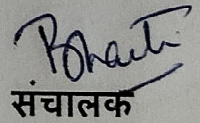 Bharti
संचालक